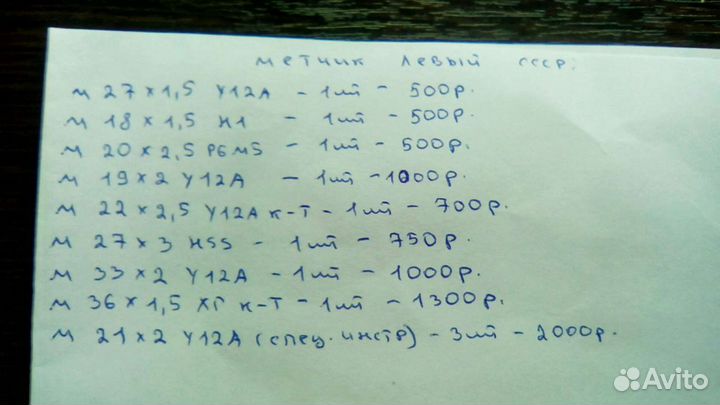 метчик левый ссср.
м 27×1,5 У12А – 1шт – 500р.
м 18×1,5 Н1 – 1шт – 500р.
м 20×2,5 Р6М5 – 1шт – 500р.
м 19×2 У12А – 1шт – 1000р.
м 22×2,5 У12А к-т – 1шт – 700р.
м 27×3 HSS – 1шт – 750р.
м 33×2 У12А – 1шт – 1000р.
м 36×1,5 ХГ к-т – 1шт – 1300р.
м 21×2 У12А (спец. инстр) – 3шт – 2000р.
Avito